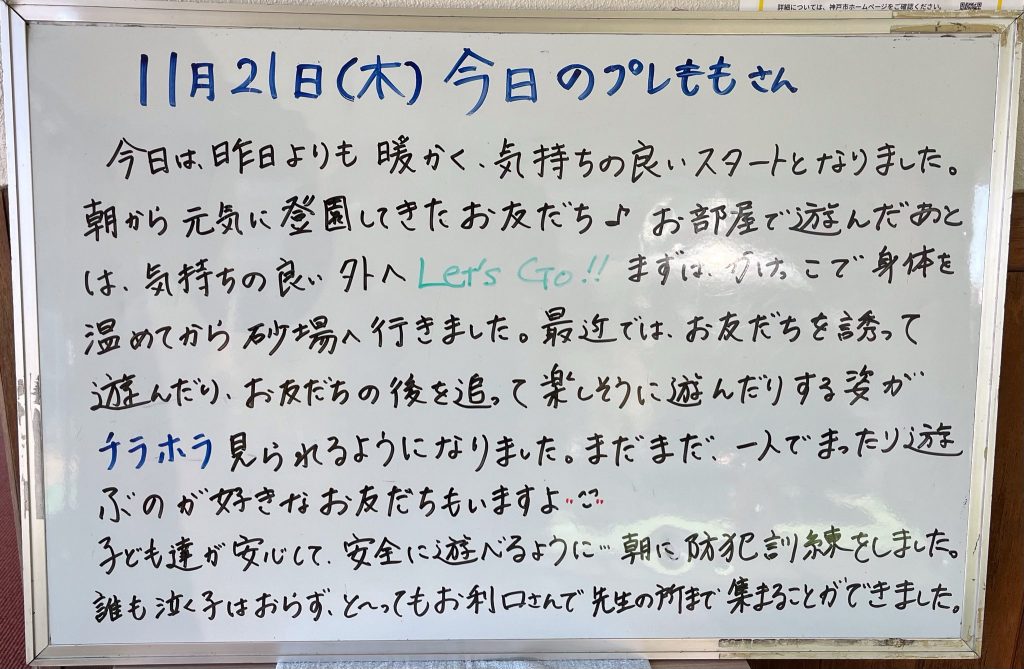 詳細については、神戸市ホームページをご確認ください。
11月21日(木) 今日のプレももさん
今日は、昨日よりも 暖かく、気持ちの良いスタートとなりました。
朝から 元気に 登園してきた お友だち♪ お部屋で遊んだあと
は、気持ちの良い 外へ Let's Go!! まずは、かけっこで 身体を
温めてから 砂場へ 行きました。最近では、お友だちを 誘って
遊んだり、お友だちの後を追って 楽しそうに遊んだりする姿が
チラホラ 見られるようになりました。まだまだ、一人でまったり遊
ぶのが好きな お友だちもいますよ
子ども達が 安心して、安全に遊べるように… 朝に 防犯訓練をしました。
誰も泣く子はおらず、と〜ってもお利口さんで 先生の所まで 集まることができました。